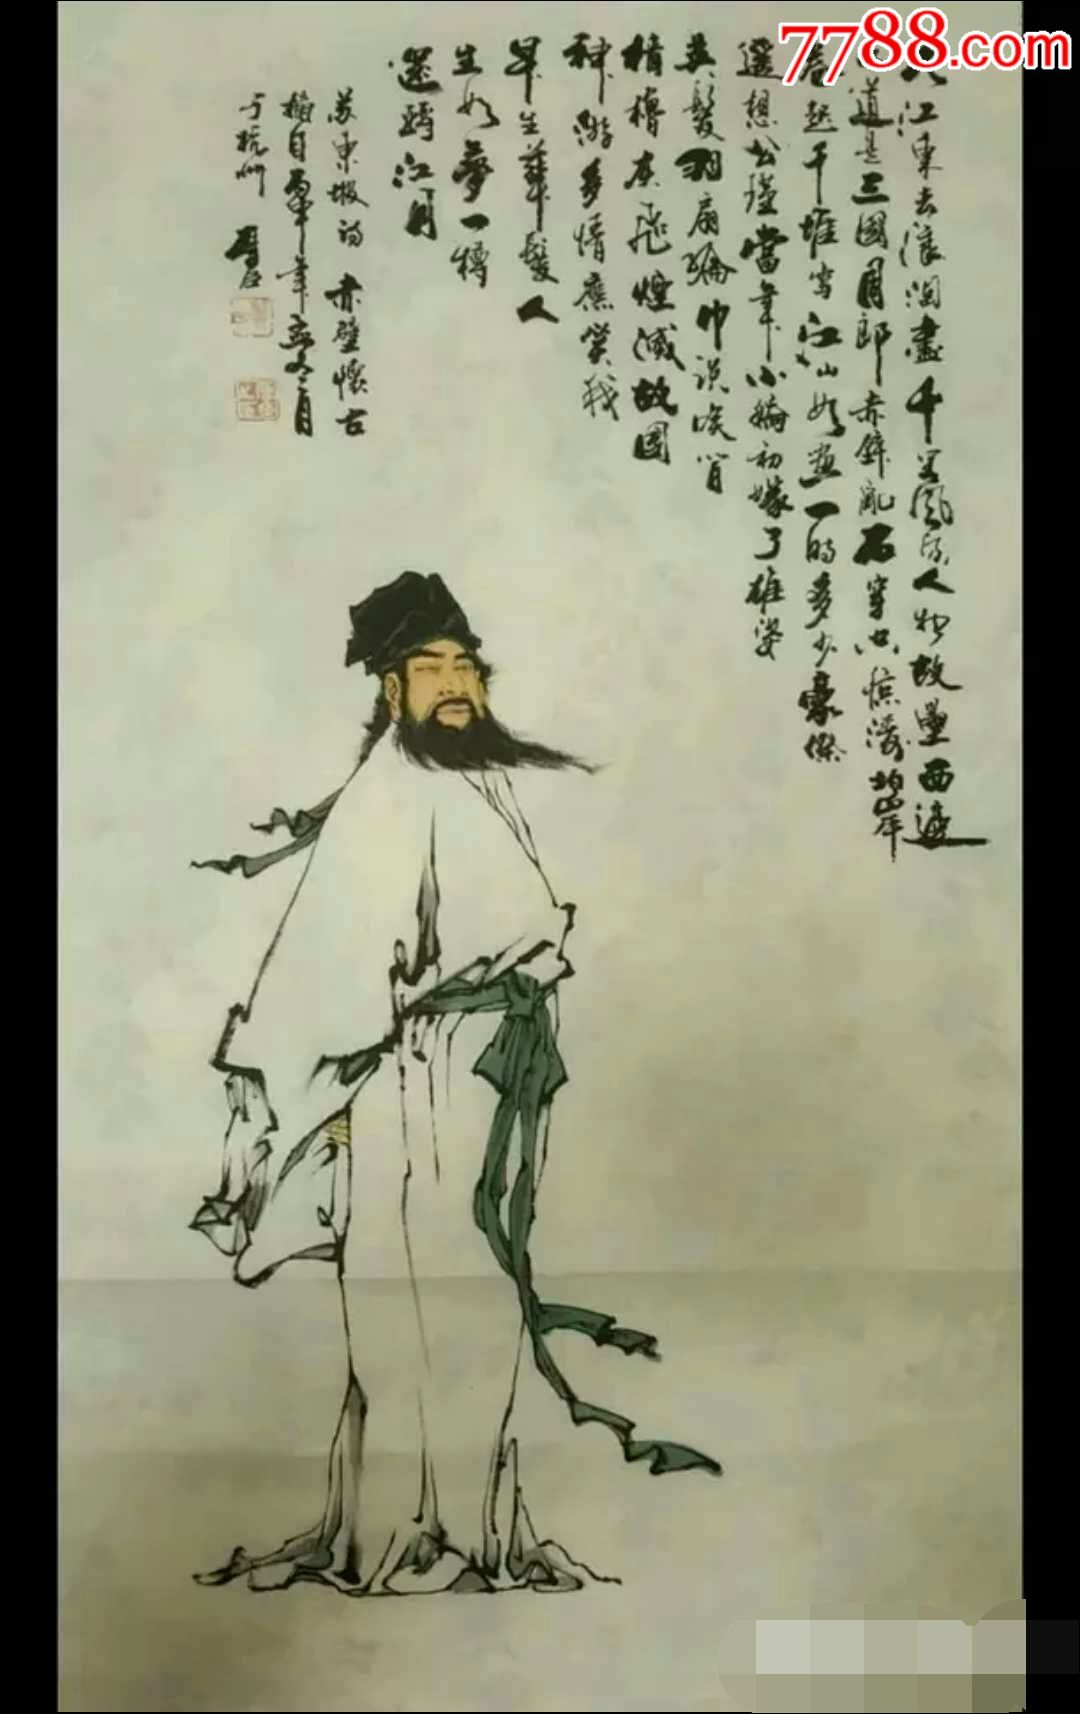 7788.com
大江东去浪淘盡千古風流人物故壘西邊
人道是三國周郎赤壁亂石穿空惊濤拍岸
卷起千堆雪江山如画一時多少豪傑
遥想公瑾當年小喬初嫁了雄姿
英發羽扇綸巾談笑間
樯櫓灰飛煙滅故國
神游多情應笑我
早生華髮人
生如夢一樽
還酹江月
苏東坡詞 赤壁懷古
于杭州